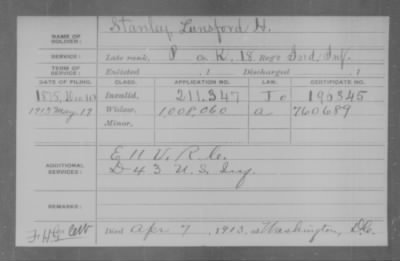 NAME OF SOLDIER: Stanley Lunsford H.
SERVICE: Late rank, P Co. K, 18 Reg't Ind. Inf.
TERM OF SERVICE: Enlisted , 1 Discharged , 1
DATE OF FILING. CLASS. APPLICATION NO. LAW. CERTIFICATE NO.
1875, Invalid, 211.347 190345
1913 May 19 Widow, 1,008,060 a 760689
Minor,
ADDITIONAL SERVICES: E 11 V. R. C.
D 43 U.S. Inf.
REMARKS:
Died Apr 7, 1913, at Washington, D.C.